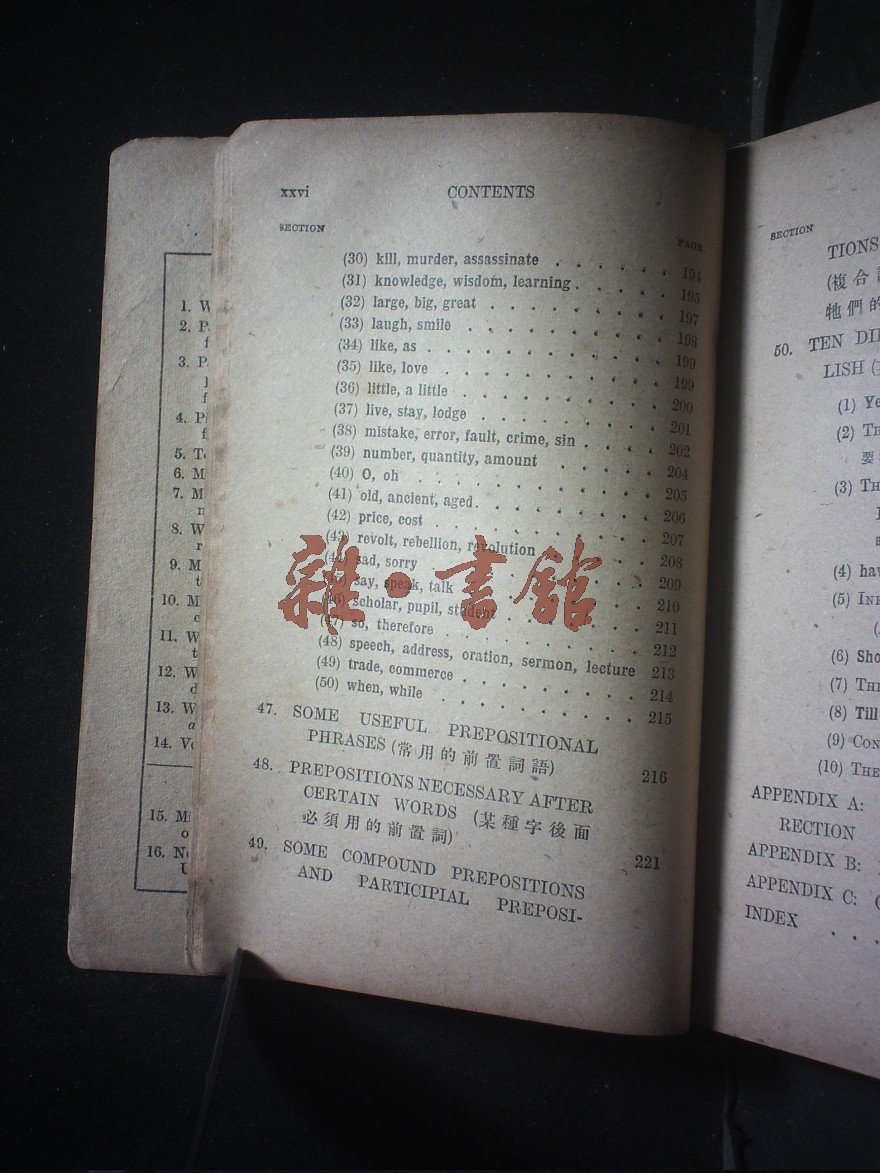 xxvi CONTENTS
SECTION PAGE
(30) kill, murder, assassinate . . . . . . 194
(31) knowledge, wisdom, learning . . . . . 195
(32) large, big, great . . . . . . . . 197
(33) laugh, smile . . . . . . . . . 198
(34) like, as . . . . . . . . . . 199
(35) like, love . . . . . . . . . . 199
(36) little, a little . . . . . . . . . 200
(37) live, stay, lodge . . . . . . . . 201
(38) mistake, error, fault, crime, sin . . . . . 202
(39) number, quantity, amount . . . . . 204
(40) O, oh . . . . . . . . . . 205
(41) old, ancient, aged . . . . . . . . 206
(42) price, cost . . . . . . . . . 207
(43) revolt, rebellion, revolution . . . . . 208
(44) sad, sorry . . . . . . . . . 209
(45) say, speak, talk . . . . . . . . 210
(46) scholar, pupil, student . . . . . . 211
(47) so, therefore . . . . . . . . . 212
(48) speech, address, oration, sermon, lecture 213
(49) trade, commerce . . . . . . . . 214
(50) when, while . . . . . . . . . 215
47. SOME USEFUL PREPOSITIONAL
PHRASES (常用的前置詞語) 216
48. PREPOSITIONS NECESSARY AFTER
CERTAIN WORDS (某種字後面
必須用的前置詞) 221
49. SOME COMPOUND PREPOSITIONS
AND PARTICIPIAL PREPOSI-
雜·書館
1. W
2. P
f
3. P
f
4. P
f
5. T
6. M
7. M
n
8. W
r
9. M
t
10. M
c
11. W
t
12. W
d
13. W
a
14. V
15. M
o
16. N
U
SECTION
TIONS
(複合
牠們的
50. TEN DI
LISH
(1) Ye
(2) TH
要
(3) TH
(4) hav
(5) INF
(6) Sho
(7) THE
(8) Till
(9) CON
(10) THE
APPENDIX A:
RECTION
APPENDIX B:
APPENDIX C:
INDEX . . .